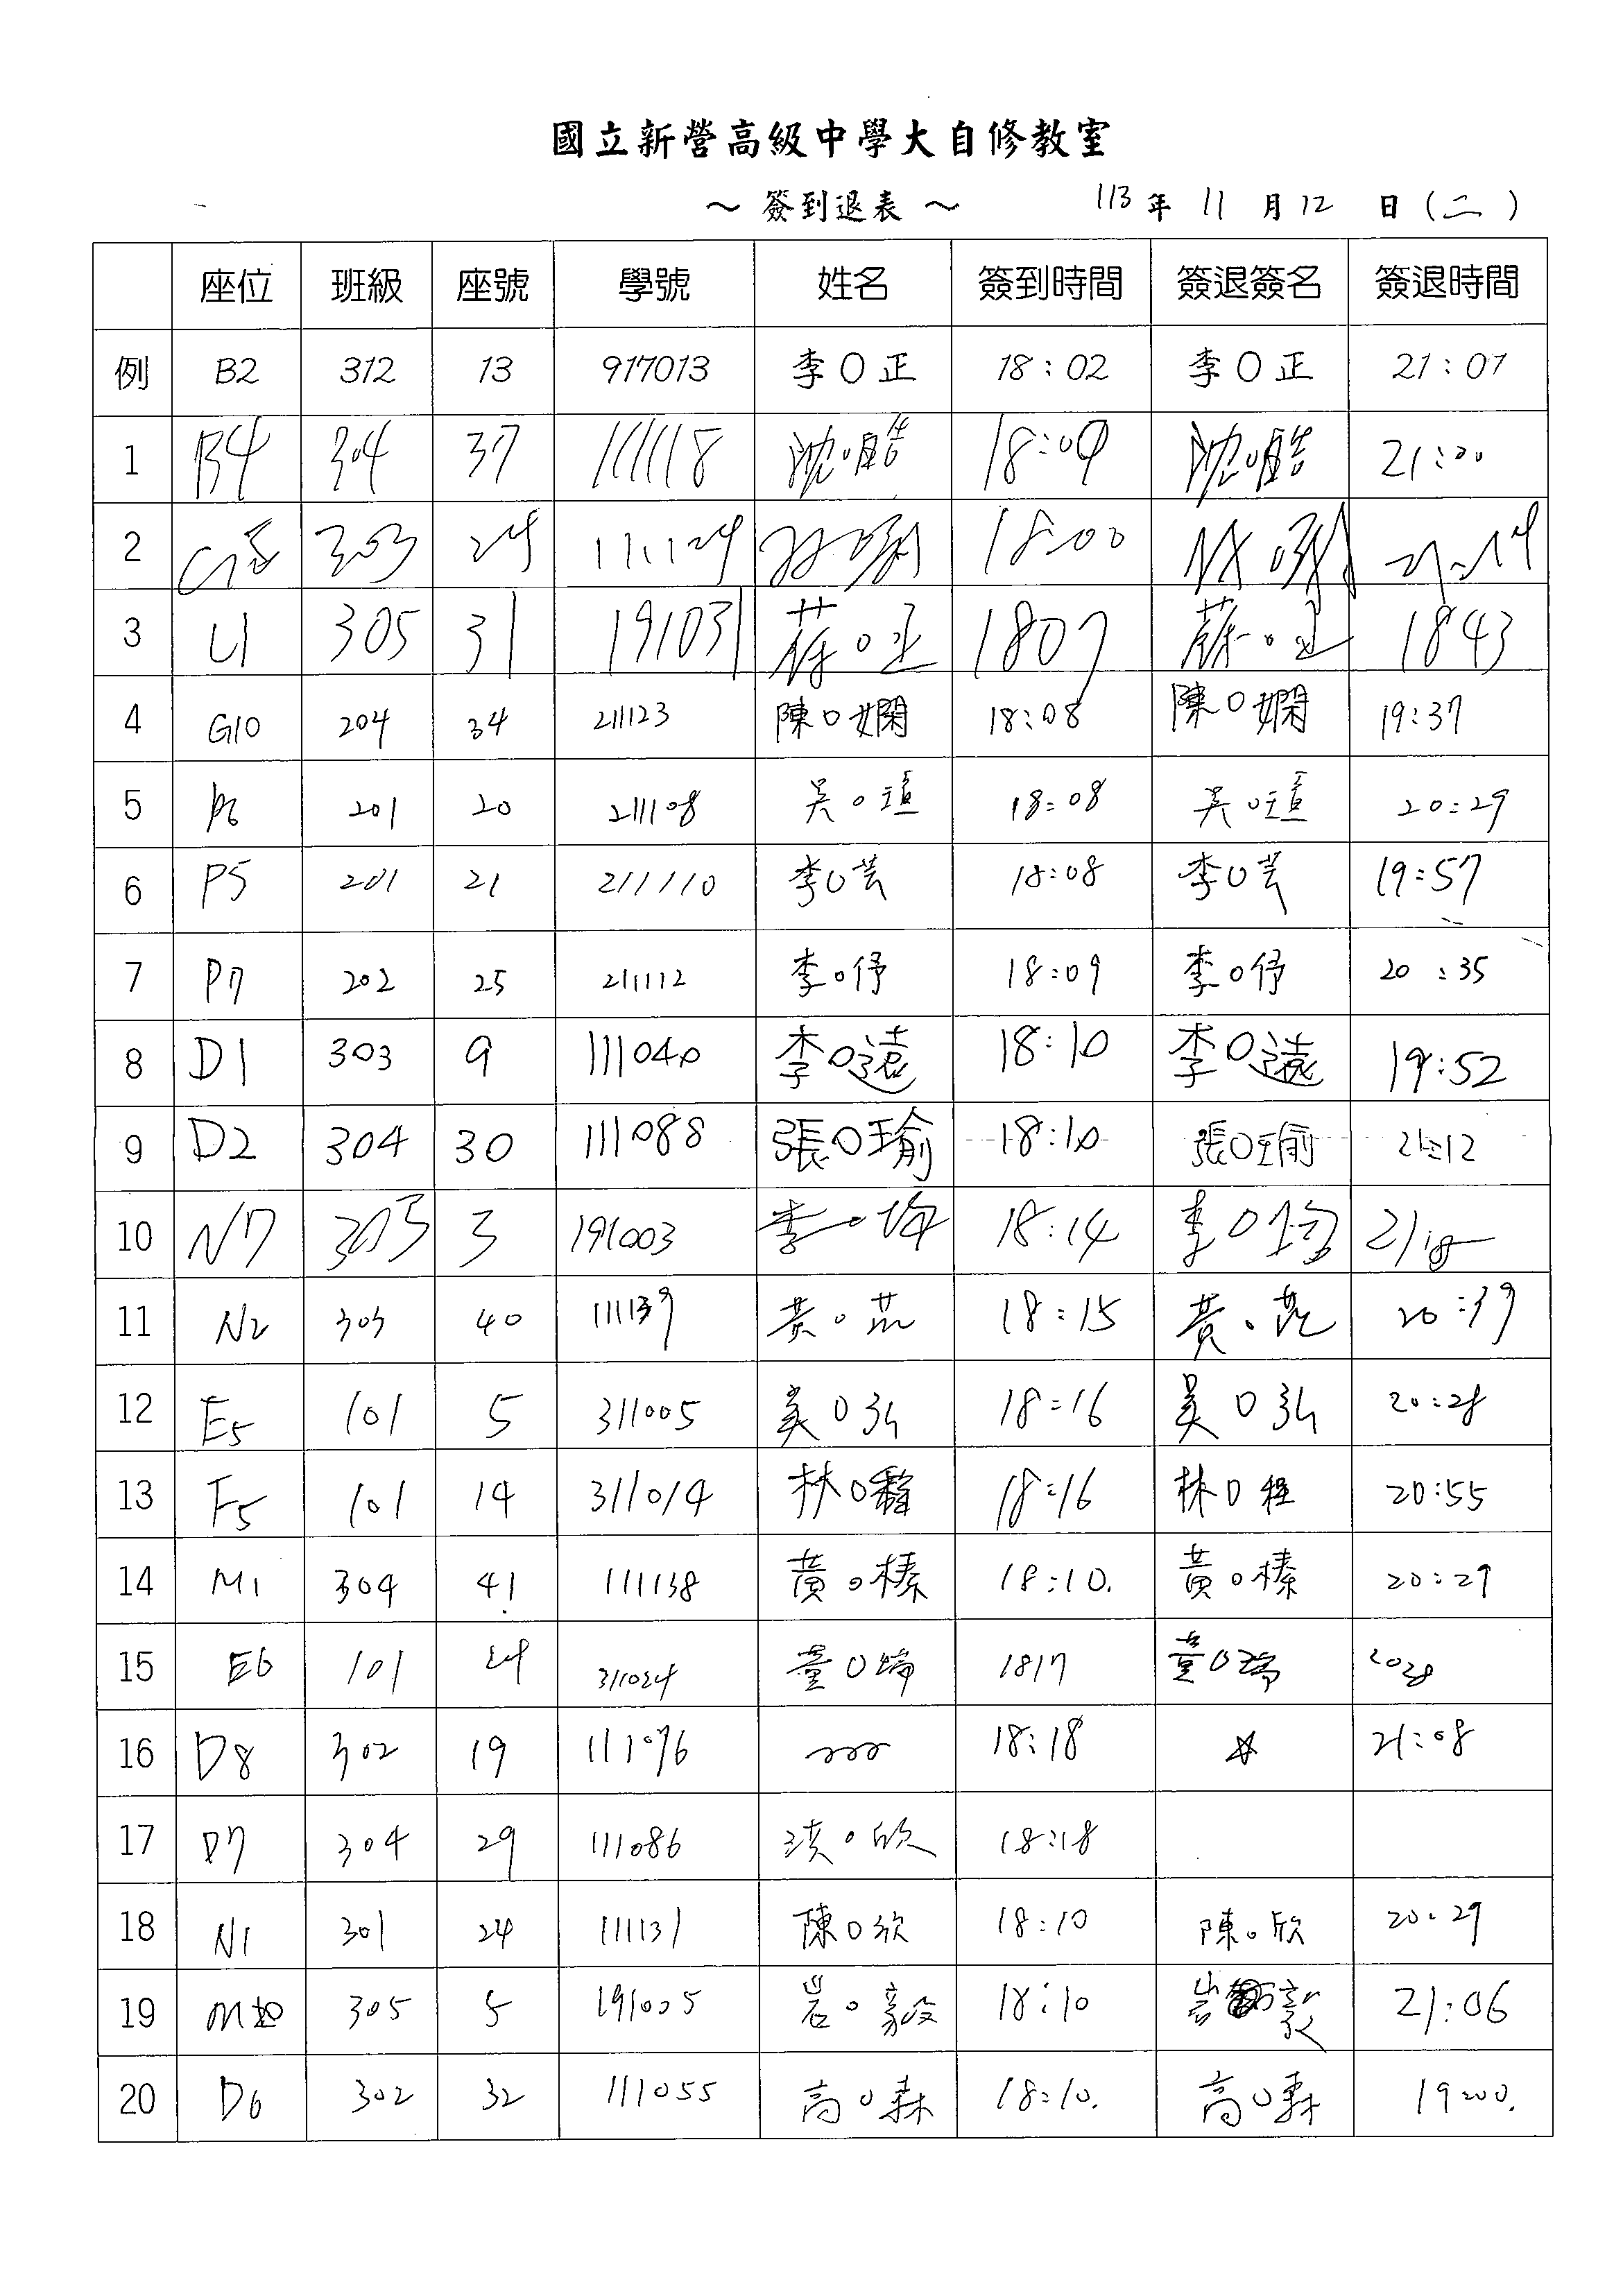 國立新營高級中學大自修教室
～ 簽到退表 ～ 113 年 11 月 12 日 (二)
座位 班級 座號 學號 姓名 簽到時間 簽退簽名 簽退時間
例 B2 312 13 917013 李〇正 18:02 李〇正 21:07
1 B4 304 37 111118 沈〇皓 18:09 沈〇皓 21:00
2 303 24 111124 18:00
3 U1 305 31 191031 蘇〇正 1807 蘇〇正 1843
4 G10 204 34 211123 陳〇嫻 18:08 陳〇嫻 19:37
5 P6 201 20 211108 吳〇萓 18:08 吳〇萓 20:29
6 P5 201 21 211110 李〇芸 18:08 李〇芸 19:57
7 P7 202 25 211112 李〇伃 18:09 李〇伃 20:35
8 D1 303 9 111040 李〇遠 18:10 李〇遠 19:52
9 D2 304 30 111088 張〇瑜 18:10 張〇瑜 21:12
10 N7 305 3 191003 李〇 18:14 李〇 21:18
11 N2 303 40 111139 黃〇 18:15 黃〇 20:39
12 E5 101 5 311005 吳〇弘 18:16 吳〇弘 20:28
13 F5 101 14 311014 林〇 18:16 林〇 20:55
14 M1 304 41 111138 黃〇榛 18:10. 黃〇榛 20:29
15 E6 101 24 311024 童〇 1817 童〇 2028
16 D8 302 19 111076 18:18 21:08
17 D7 304 29 111086 〇欣 18:18
18 N1 301 24 111131 陳〇欣 18:10 陳〇欣 20:29
19 305 5 191005 岩〇毅 18:10 21:06
20 D6 302 32 111055 高〇森 18:10. 高〇森 19:00.